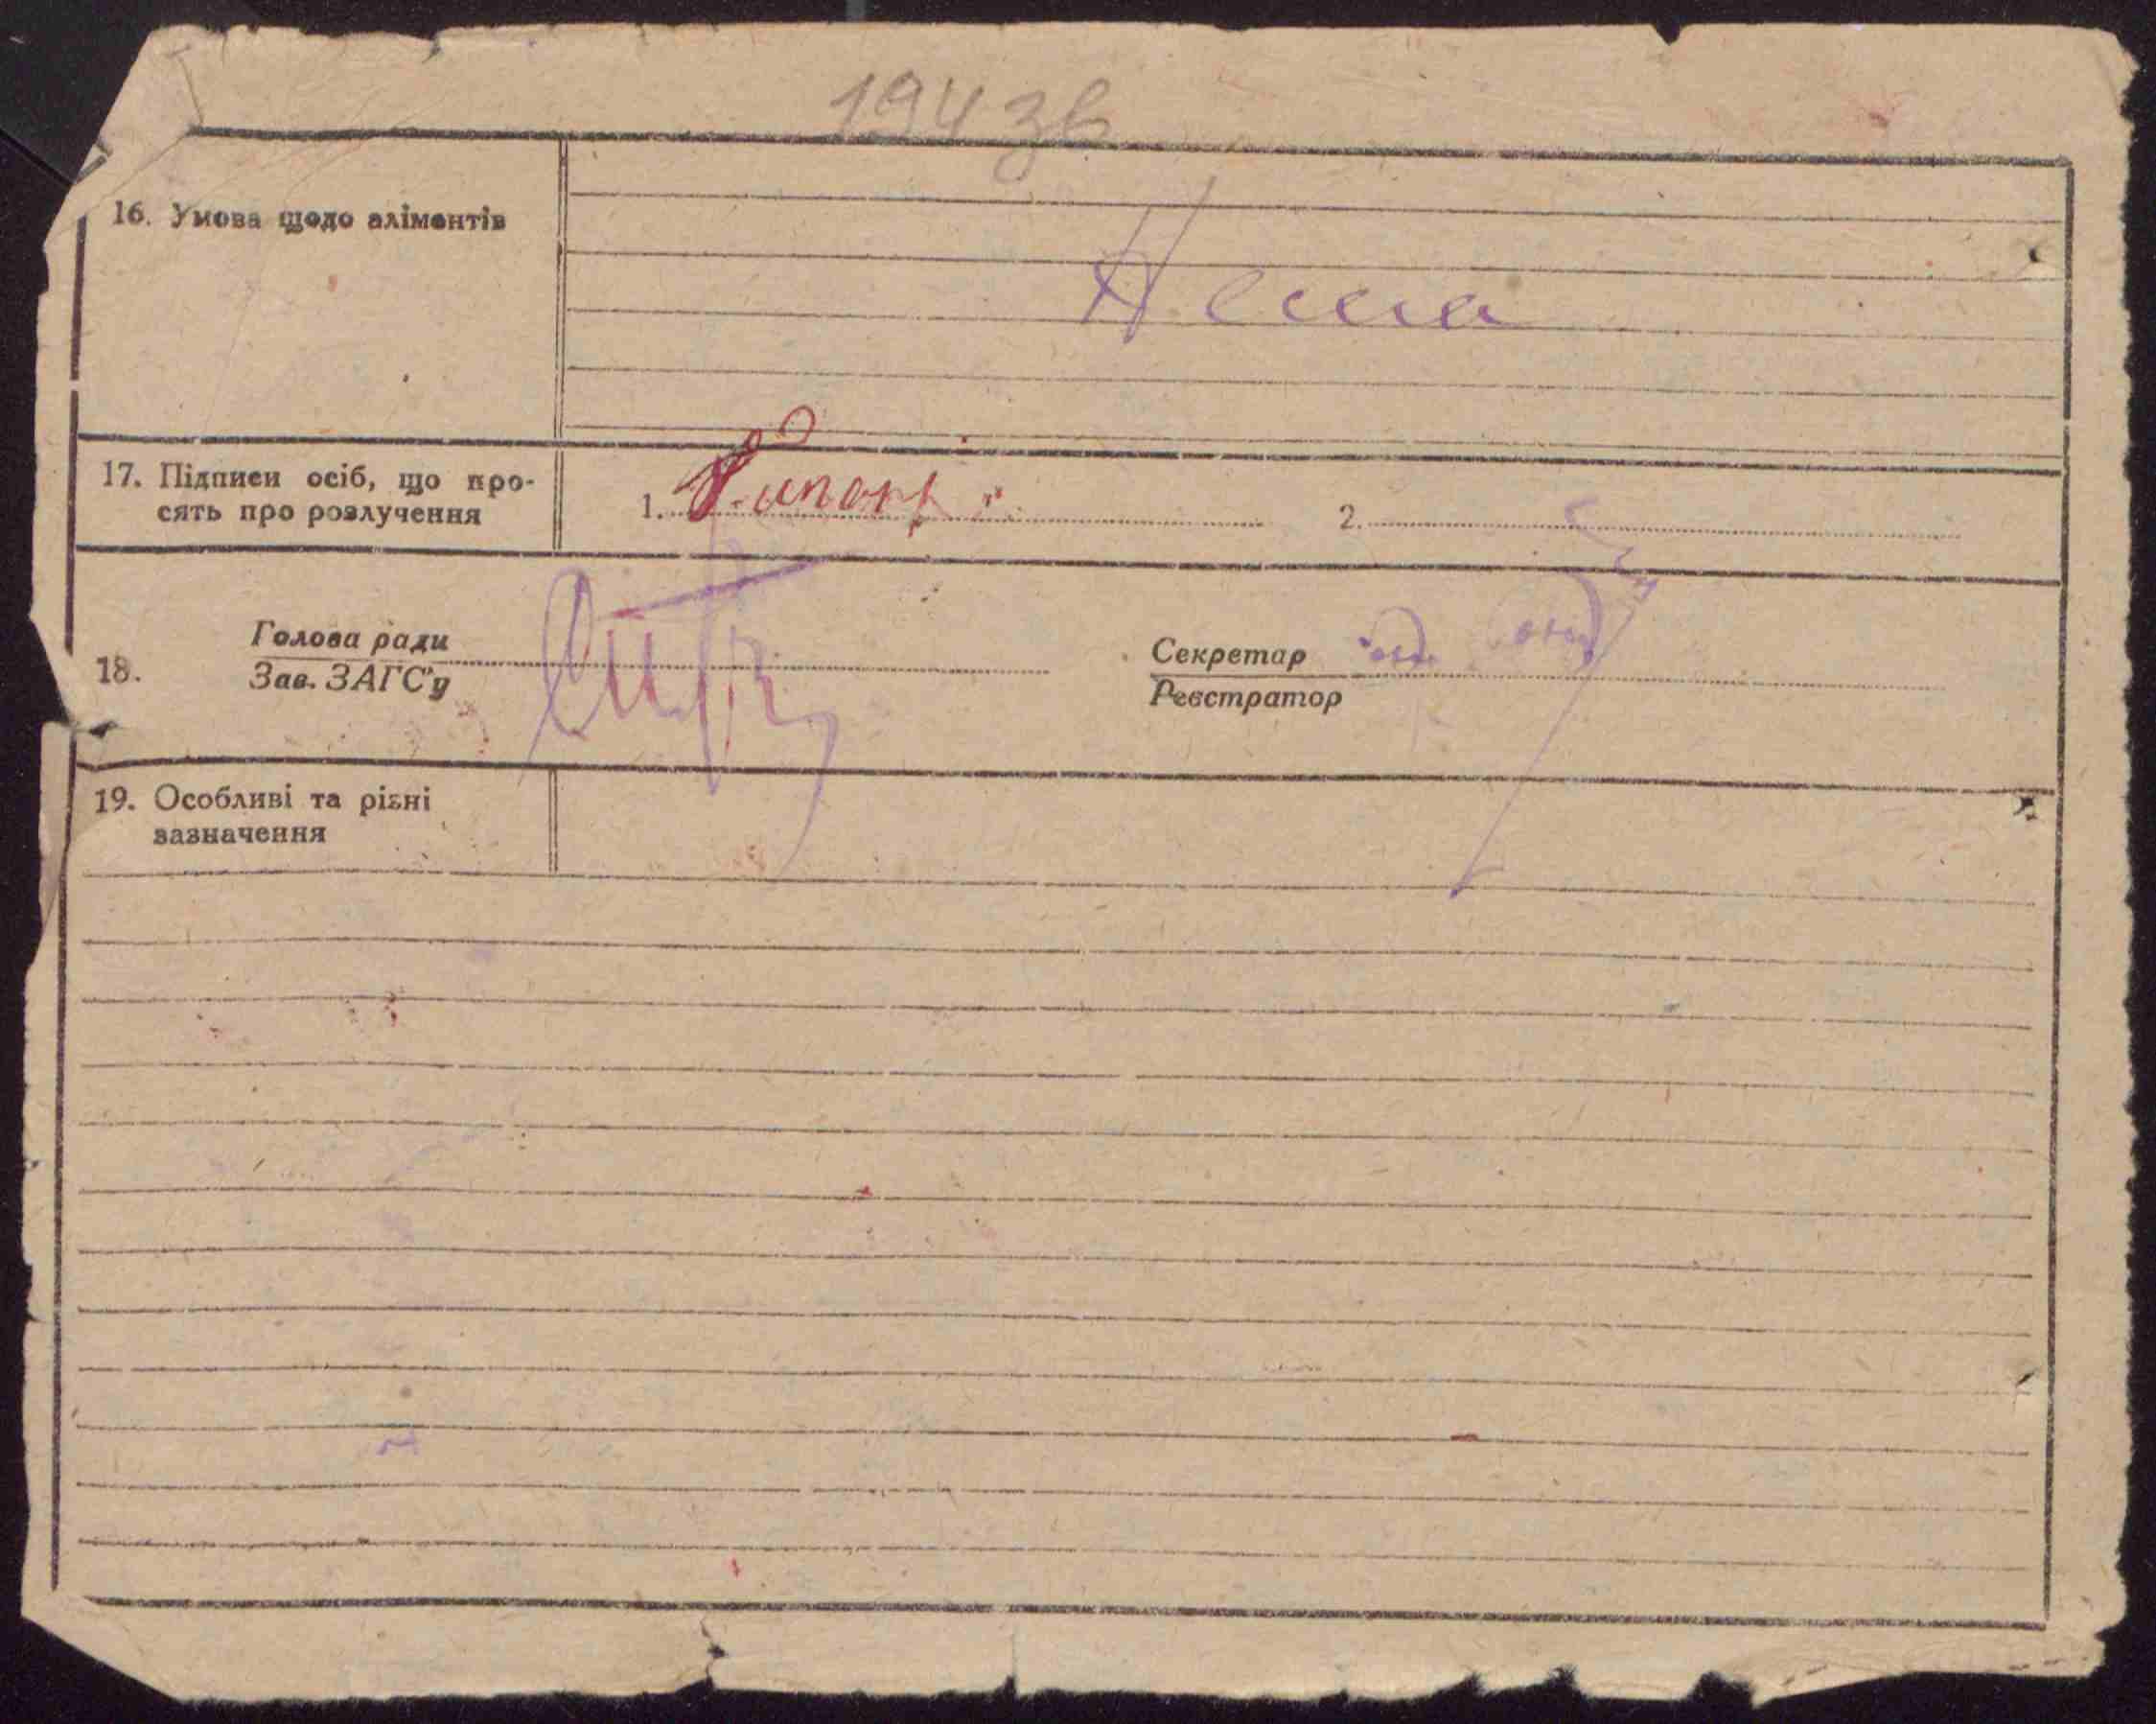 194 зв
16. Умова щодо аліментів
Нема
17. Підписи осіб, що про-
сять про розлучення
1.
2.
18.
Голова ради
Зав. ЗАГС'у
Секретар
Реєстратор
19. Особливі та різні
зазначення